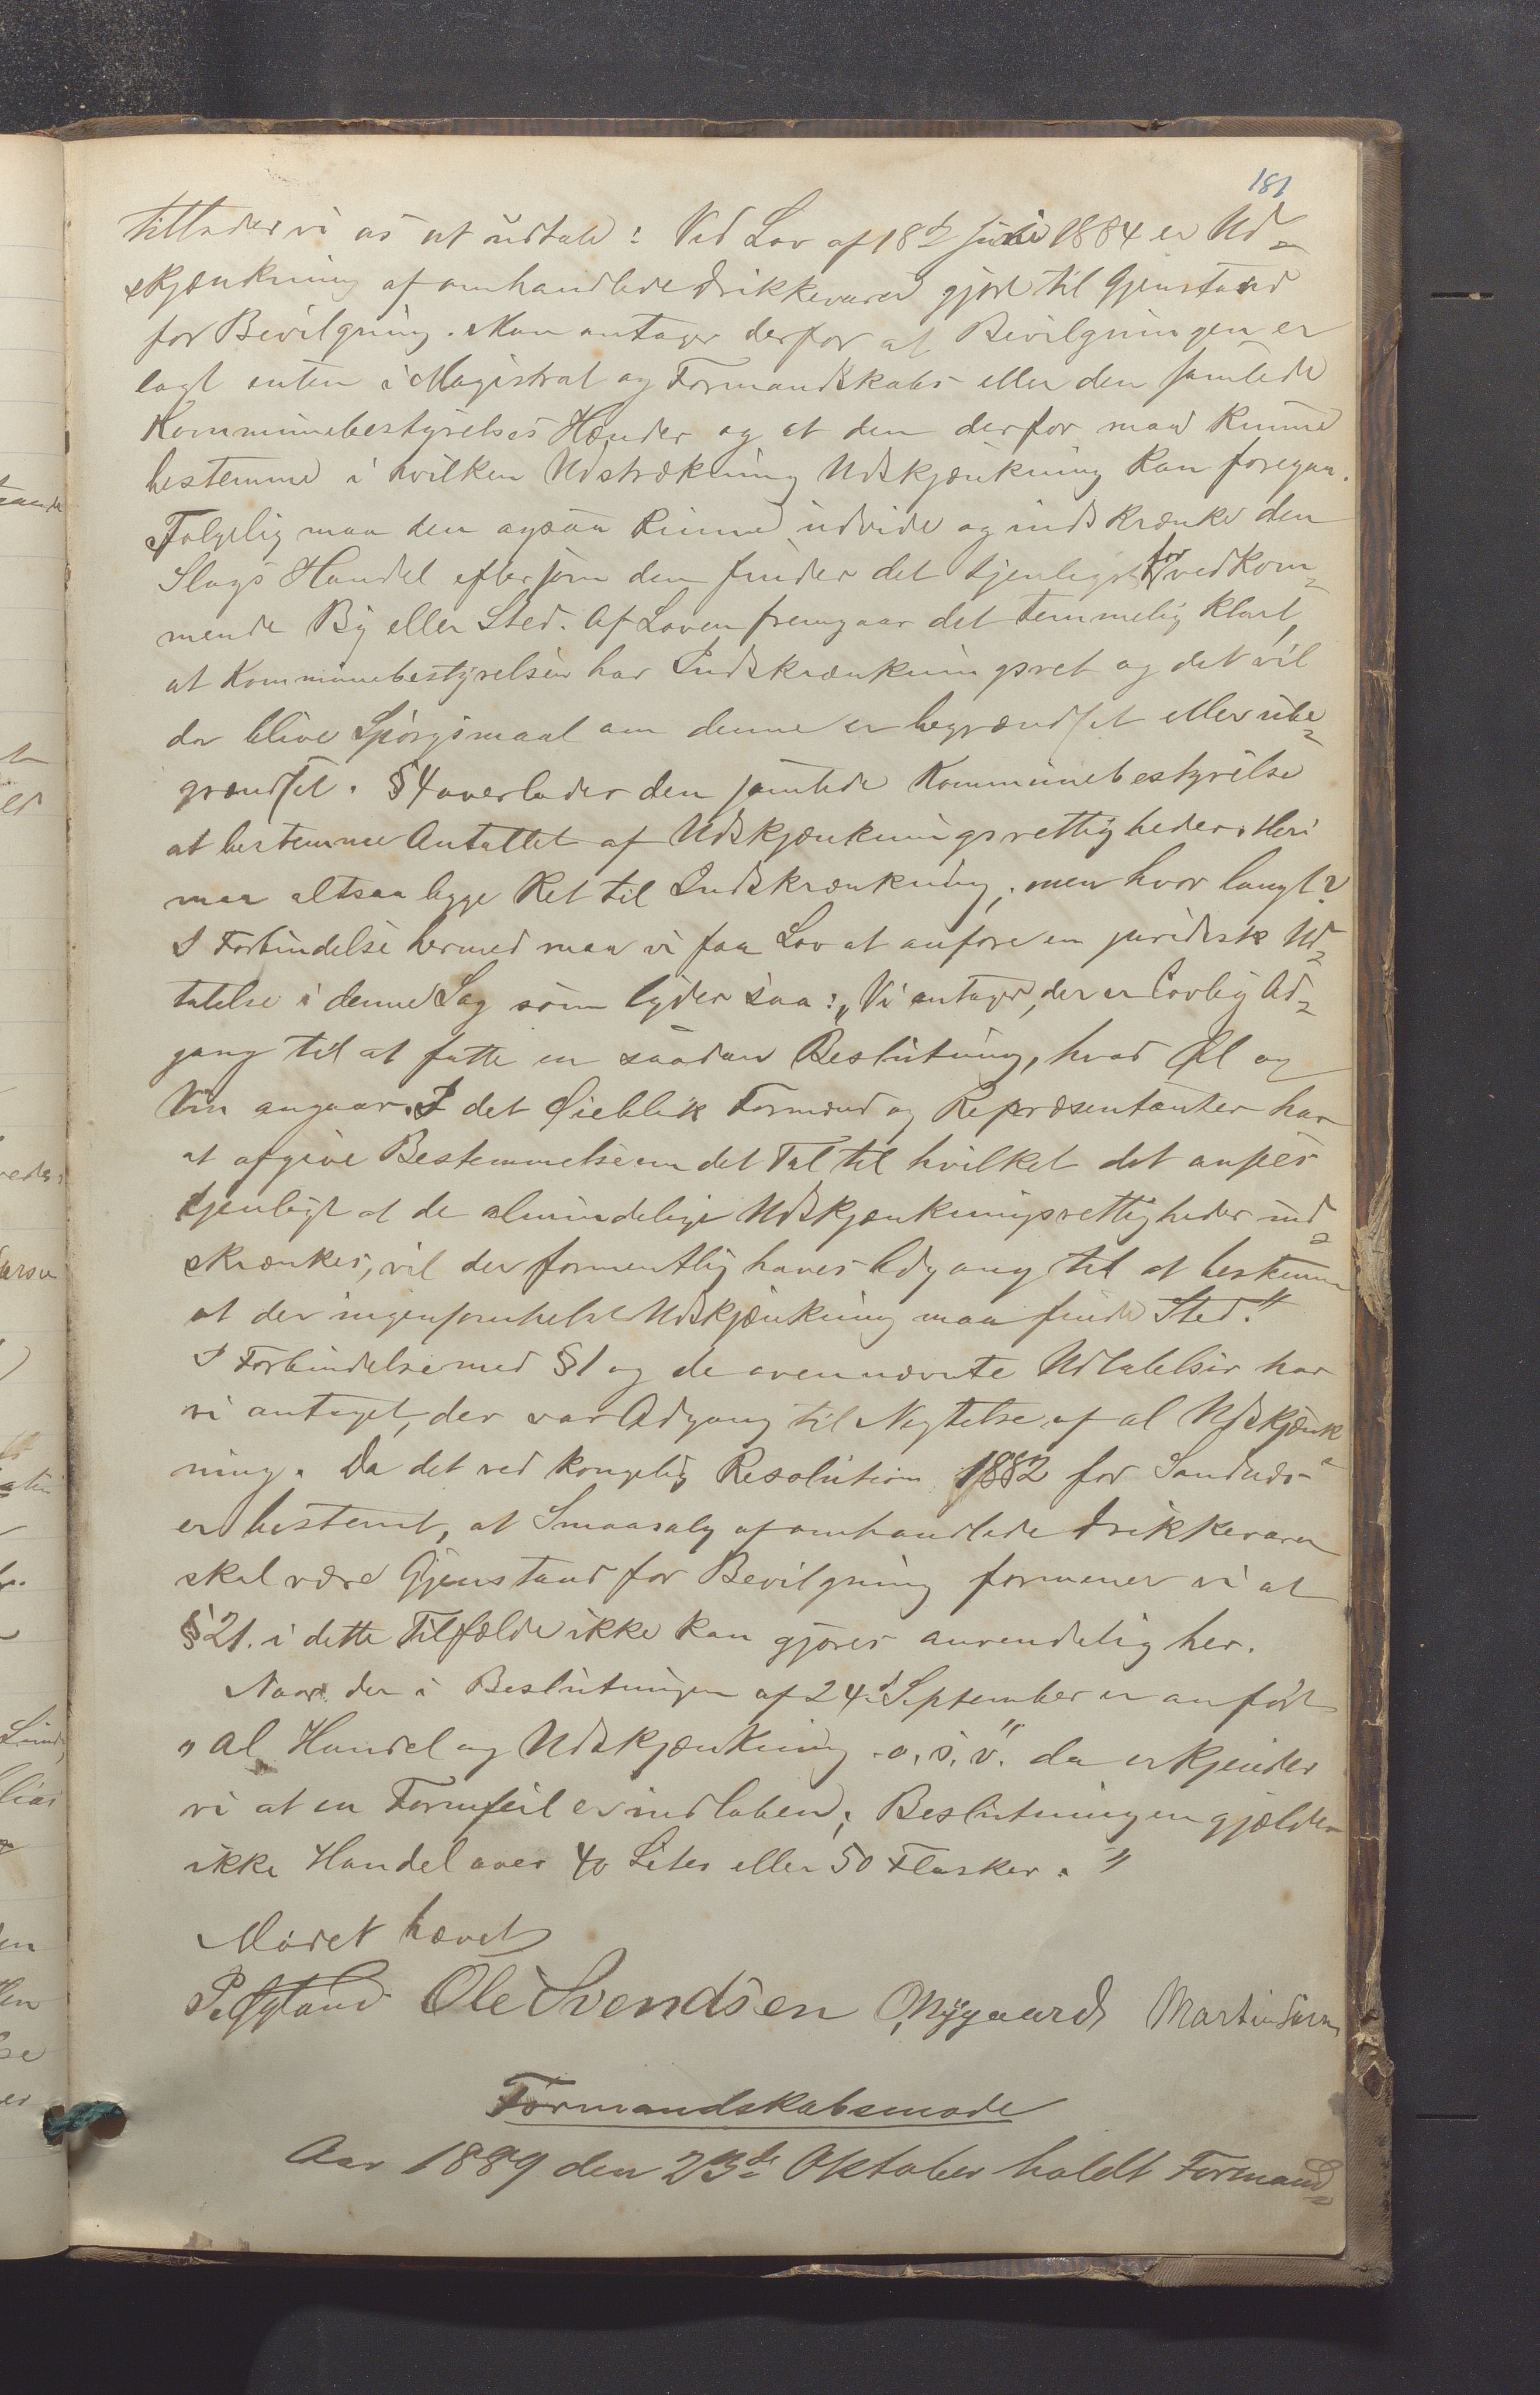 181
tillader vi os at udtale: Ved Lov af 18de juni 1884 er Ud-
skjænkning af omhandlede Drikkevarer gjort til Gjenstand
for Bevilgning. Man antager derfor at Bevilgningen er
lagt enten i Magistrat og Formandskabs- eller den samlede
Kommunebestyrelses Hænder og at den derfor maa kunne
bestemme i hvilken Udstrækning Udskjænkning kan foregaa.
Følgelig maa den ogsaa kunne udvide og indskrænke den
Slags Handel eftersom den finder det tjenligst for vedkom-
mende By eller Sted. Af Loven fremgaar det temmelig klart,
at Kommunebestyrelsen har Indskrænkningsret og det vil
da blive Spörgsmaal om denne er begrændset eller ube-
grændset. § 4 overlader den samlede Kommunebestyrelse
at bestemme Antallet af Udskjænkningsrettigheder. Heri
maa altsaa ligge Ret til Indskrænkning, men hvor langt?
I Forbindelse hermed maa vi faa Lov at anføre en juridisk Ud-
talelse i denne Sag som lyder saa: „Vi antager, der er Lovlig Ad-
gang til at fatte en saadan Beslutning, hvad Øl og
Vin angaar. I det Øieblik Formænd og Repræsentanter har
at afgive Bestemmelse om det Tal til hvilket det ansees
tjenligt at de almindelige Udskjænkningsrettigheder ind-
skrænkes, vil der formentlig haves Adgang til at bestemme
at der ingensomhelst Udskjænkning maa finde Sted."
I Forbindelse med § 1 og de ovennævnte Udtalelser har
vi antaget, der var Adgang til Negtelse af al Udskjænk
ning. Da det ved kongelig Resolution 1882 for Sandnæs
er bestemt, at Smaasalg af omhandlede Drikkevarer
skal være Gjenstand for Bevilgning formener vi at
§ 21. i dette Tilfælde ikke kan gjøres anvendelig her.
Naar der i Beslutningen af 24de September er anført
„Al Handel og Udskjænkning o. s. v." da erkjender
vi at en Formfeil er indløben; Beslutningen gjælder
ikke Handel over 40 Liter eller 50 Flasker."
Mödet hævet
P. Øgland Ole Svendsen O, Nygaard Martin
Formandskabsmøde
Aar 1889 den 23de Oktober holdt Formand-